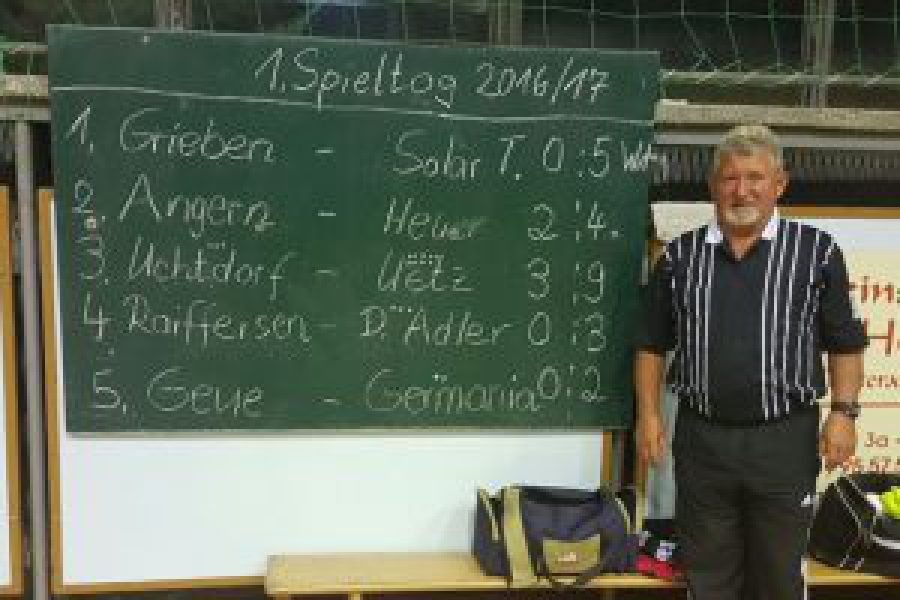 1. Spieltag 2016/17
1. Grieben - Solar T. 0:5
2. Angern - Heuer 2:4.
3. Uchtdorf - Uetz 3:9
4. Raiffersen - D. Adler 0:3
5. Geue - Germania 0:2